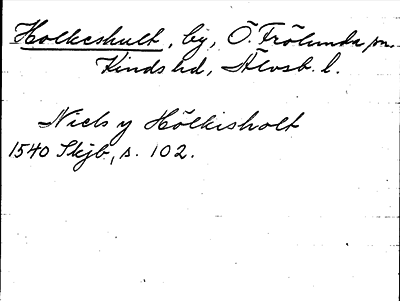 Holkeshult, by, Ö. Frölunda sn.
Kinds hd, Älvsb. l.
Niels y Hölkisholt
1540 Skjb, s. 102.